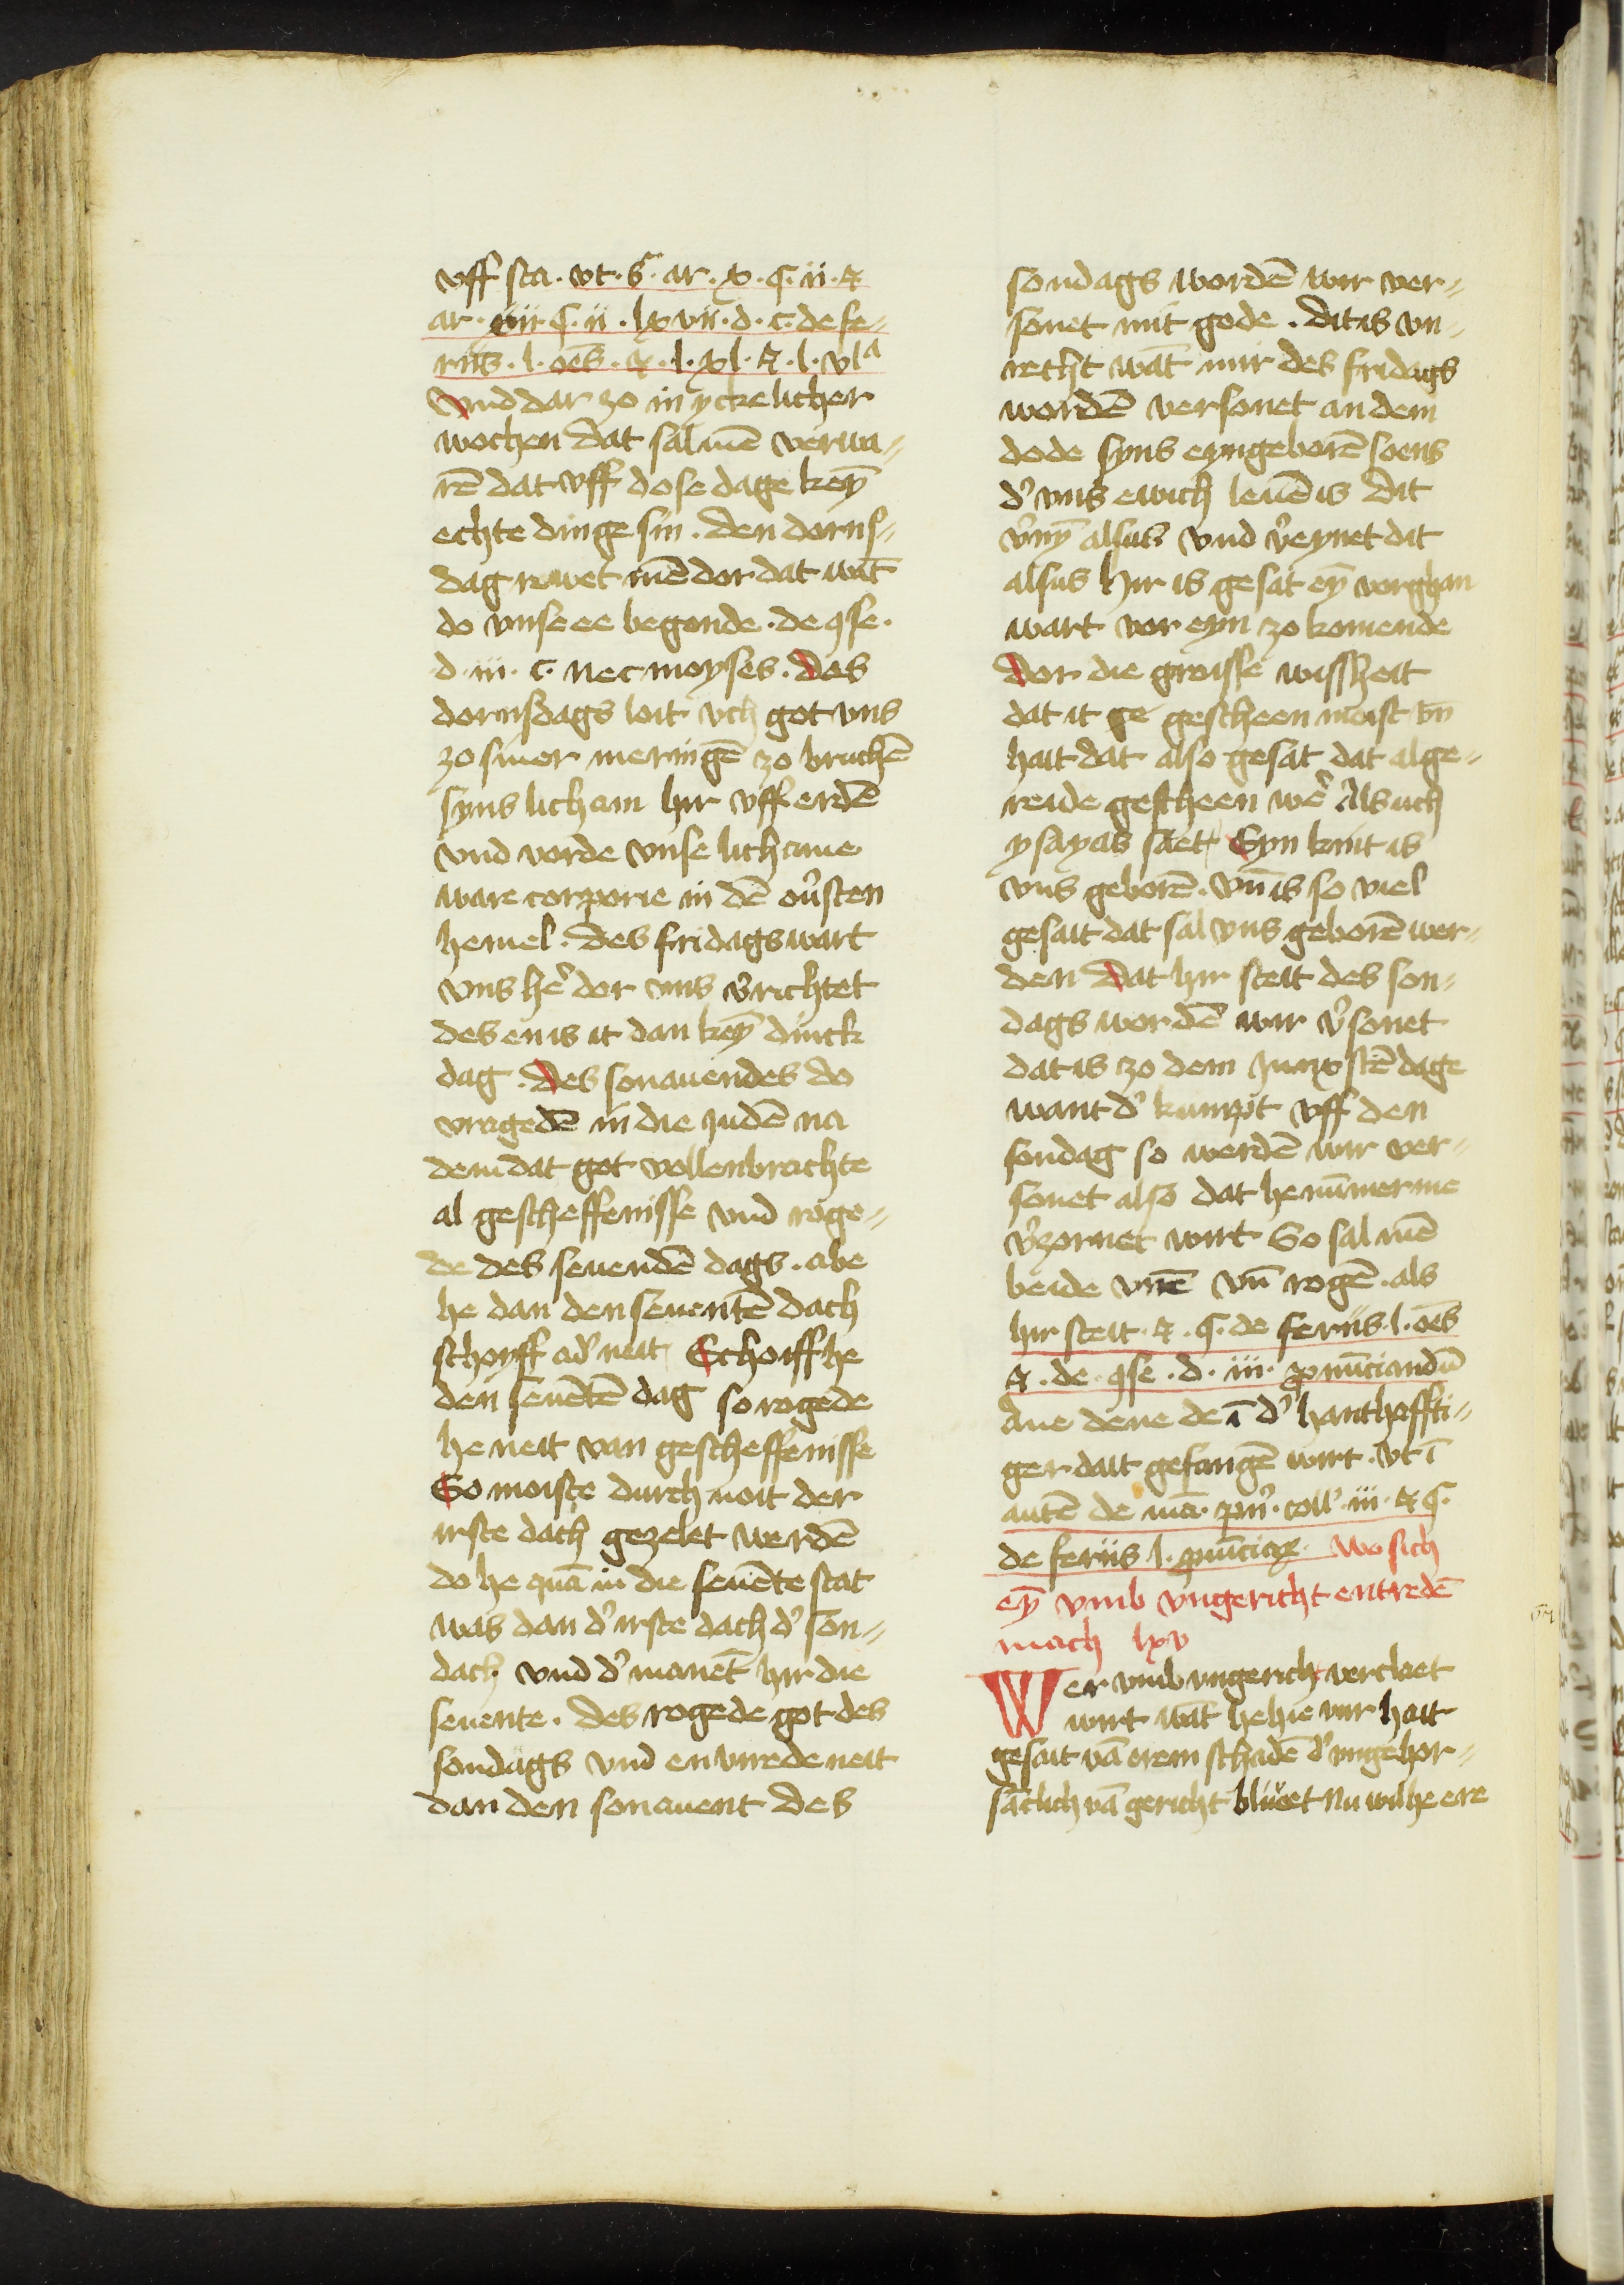 vff sta. vt. s. ar. x. q. ii. &
ar. xiii. q. ii. lxvii. d. c. de fe-
riis. l. oēs. &. l. xl. &. l. vla
Vnd dar zo in yckelicher
wochen dat sal mē verwa-
rē dat vff dese dage keȳ
echte dinge sin. den dorns-
dag ruwet mē dor dat wāt
do vnse ee begonde. de ꝯse.
d. iii. c. nec moyses. Des
dornsdags loit vch got vns
zo siner meringē zo bruchē
syns licham hir vff erdē
vnd vorde vnse lichame
ware corporie in dē ou̓sten
hemel. des fridags wart
vns he̓ der vns v̓richtet
des en is it dan keȳ dinck
dag. Des sonauendes do
vragedē in die Judē na
dem dat got vollenbrachte
al gescheffenisse vnd roge-
de des seuendē dags. abe
he dan den seuentē dach
schoyff ad̓ neit Schoiff he
den seuētē dag so rogede
he neit van gescheffenisse
So moiste durch noit der
irste dach gezelet werdē
do he quā in die seuēte stat
was dan d̓ irste dach d̓ son-
dach vnd d̓ manēt hir die
seuente. des rogede got des
sondags vnd en virede neit
dan den sonauent des
sondags wordē wir ver-
sonet mit gode. dit is vn-
recht wāt wir des fridags
wordē versonet an dem
dode syns eyngeborē soens
d̓ vns ewich leuē is Dit
v̓nȳ alsus vnd v̓eynet dit
alsus hir is gesat eȳ vorghan
wart vor eyn zo komende
Dor die groisse wissheit
dat it ge gescheen moist vn̄
hait dat also gesat dat alge-
reide gescheen we̓ Als uch
ysayas sāet Eyn kint is
vns geborē. vn̄ is so viel
gesait dat sal vns geborē wer-
den Dat hir steit des son-
dags wordē wir v̓sonet
dat is zo dem Junxstē dage
want d̓ kumpt vff den
sondag so werdē wir ver-
sonet also dat he nūmer me
v̓zornet wirt So sal mē
beide vn̄ē vn̄ rogē. als
hir steit. &. q. de feriis. l. oēs
&. de. ꝯse. d. iii. pronūciandū
Ane dene de ī d̓ hanthoffti-
ger dait gefangē wirt. vt ī
autē de mā. pn̓. coll. iii. & q.
de feriis l. puīciaꝝ. wo sich
eȳ vmb vngericht entredē
mach lxv
Wer vmb vngericht verclaet
wirt wāt he hie vur hait
gesait vā erem schadē d̓ vngehor-
sāclich vā gericht bliuet Nu wil he ere